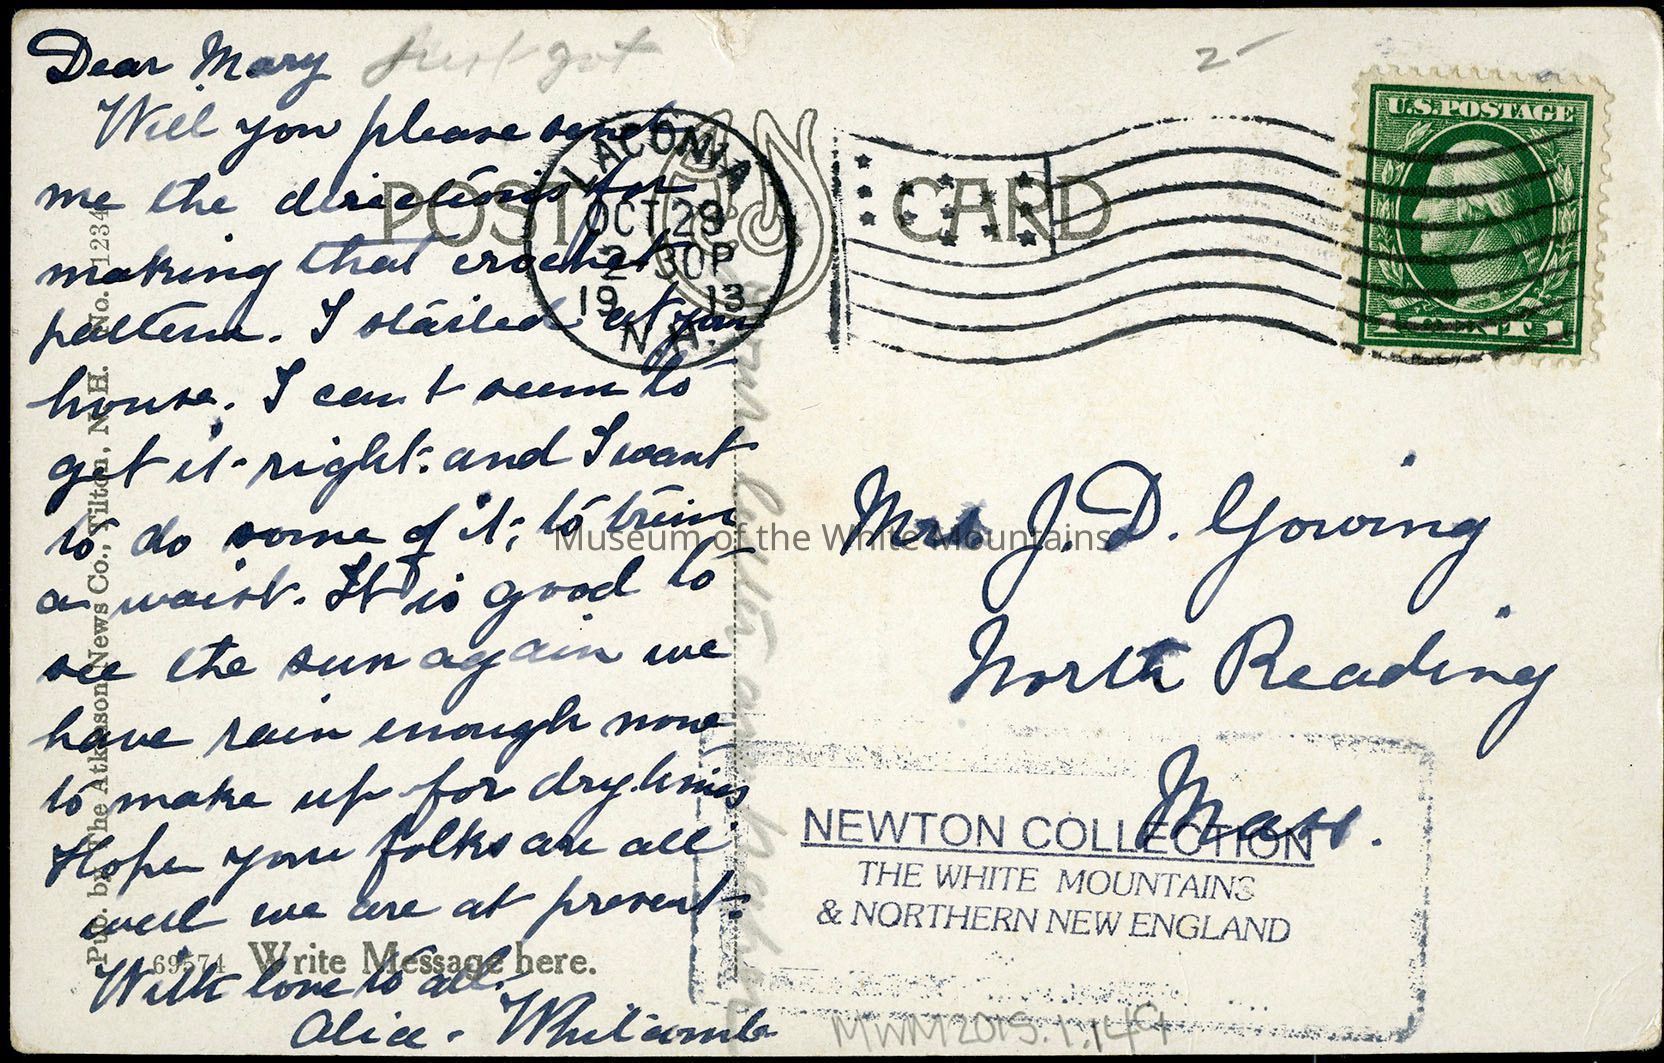 Dear Mary Just got
Will you please send
me the directions for
making that crochet
pattern. I started at your
house. I can't seem to
get it right: and I want
to do some of it; to trim
a waist. It is good to
see the sun again we
have rain enough now
to make up for dry times
Hope your folks are all
well we are at present.
With love to all.
Alice - Whitcomb
Pub. by The Atkinson News Co., Tilton, N. H. No. 1234
69574 Write Message here.
POST CARD
LACONIA
OCT 29
2 30P
19 13
N.H.
2
U.S. POSTAGE
1 CENT 1
Mrs J. D. Gowing
North Reading
Mass.
Museum of the White Mountains
NEWTON COLLECTION
THE WHITE MOUNTAINS
& NORTHERN NEW ENGLAND
MWM2015.1.149